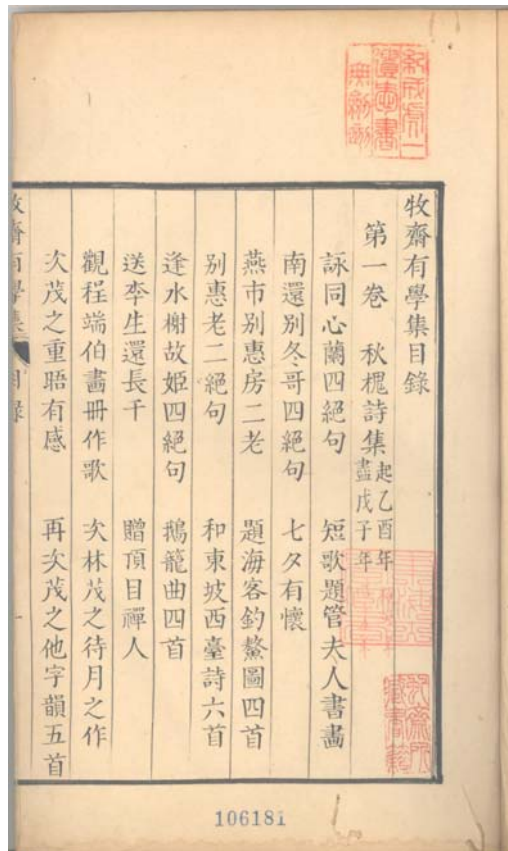 牧齋有學集目錄
第一卷　秋槐詩集起乙酉年盡戊子年
詠同心蘭四絕句　短歌題管夫人書畫
南還別冬哥四絕句　七夕有懷
燕市別惠房二老　題海客釣鰲圖四首
別惠老二絕句　和東坡西臺詩六首
逢水榭故姬四絕句　鵝籠曲四首
送李生還長干　贈頂目禪人
觀程端伯畫冊作歌　次林茂之待月之作
次茂之重晤有感　再次茂之他字韻五首
牧齋有學集　目錄　一
106181